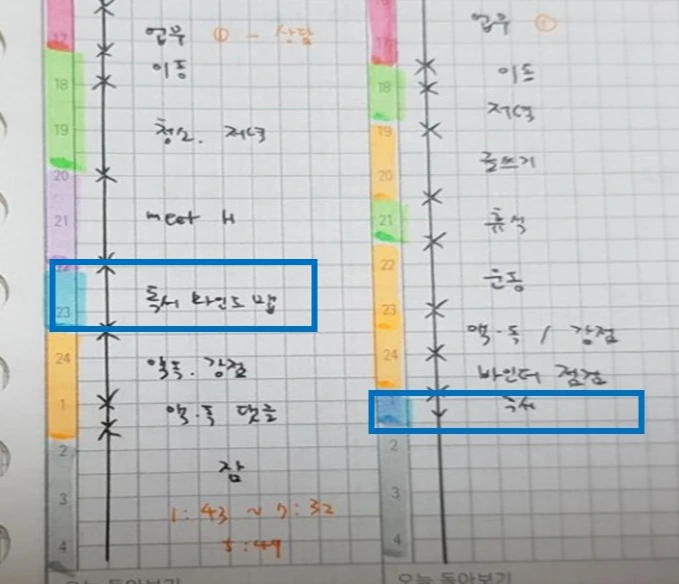 17 업무 ① - 상담
이동
18
19 청소. 저녁
20
21 meet H
22
23 독서 마인드 맵
24 액독. 강점
1 액.독 댓글
2 잠
3 1:43 ~ 7:32
4 5:49
오늘 돌아보기
업무 ①
17
이동
18 저녁
19
글쓰기
20
21 휴식
22 운동
23
액.독 / 강점
24 바인더 점검
독서
2
3
4
오늘 돌아보기